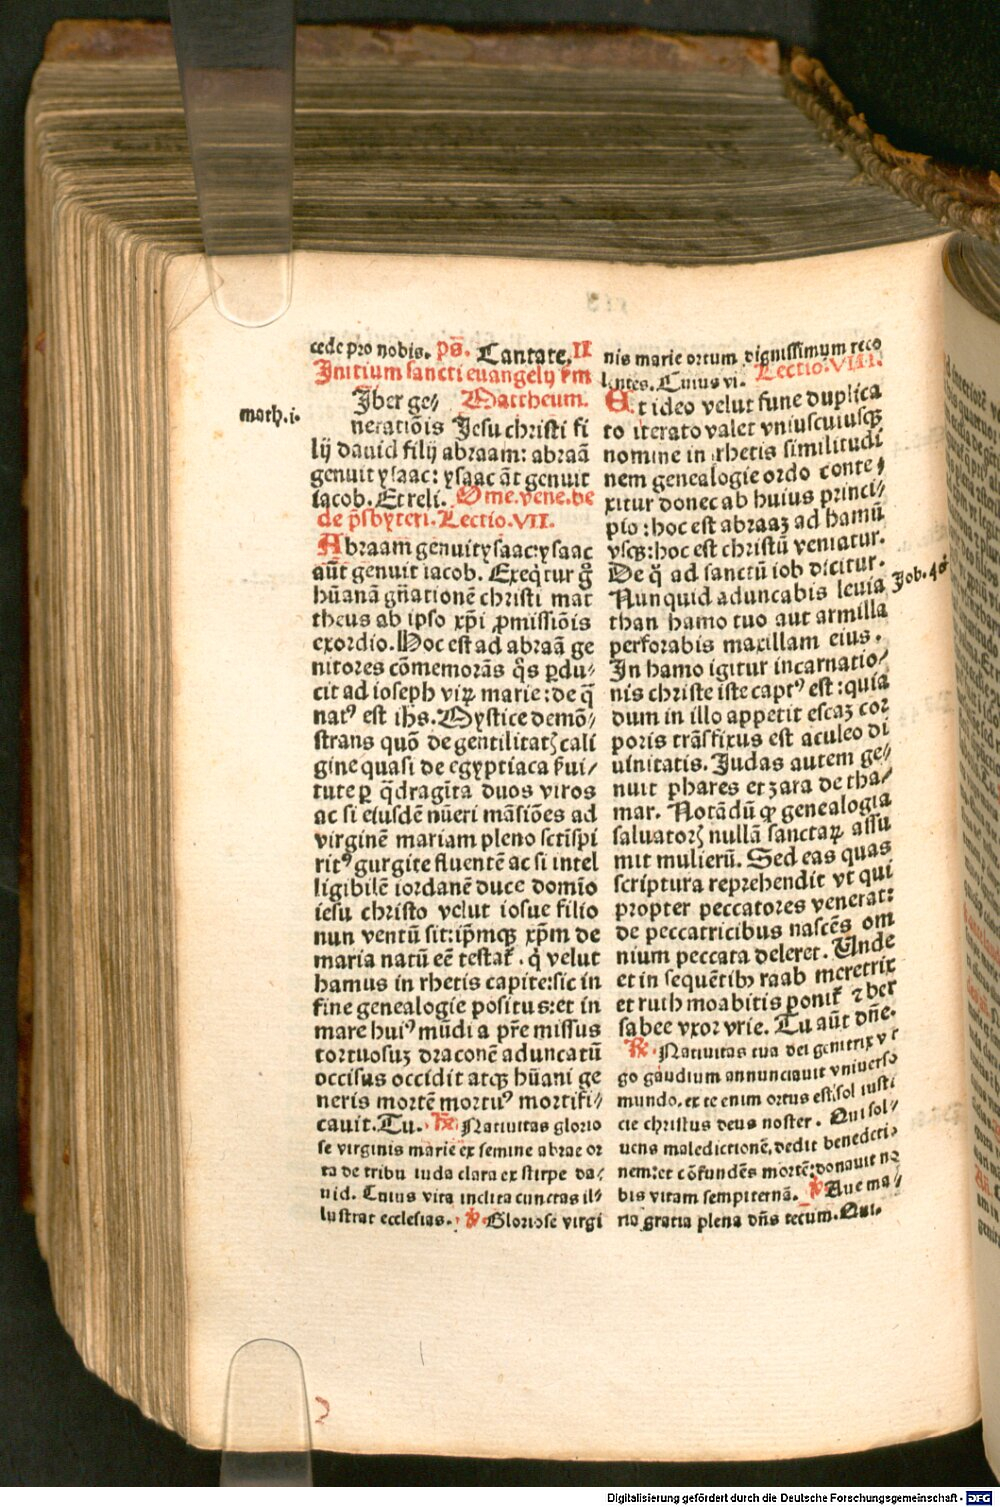 cede pro nobis. ps̄. Cantate. II
Initium sancti euangelij s̄m
Iber ge⸗ Mattheum.
math.i.
neratiōis Jesu christi fi
lij dauid filij abraam: abraā
genuit ysaac: ysaac āt genuit
iacob. Et reli. Ome.vene.be
de p̄sbyteri. Lectio.VII.
Abraam genuit ysaac: ysaac
aūt genuit iacob. Exeq̄tur g̊
hūanā gn̄ationē christi mat
theus ab ipso xp̄i ꝓmissiōis
exordio. Hoc est ad abraā ge
nitores cōmemorās q̄s ꝑdu⸗
cit ad ioseph virꝝ marie: de q̄
natꝰ est ihs. Mystice demō⸗
strans quō de gentilitatꝭ cali
gine quasi de egyptiaca s̄ui⸗
tute ꝑ q̄dragīta duos viros
ac si eiusdē nūeri māsiōes ad
virginē mariam pleno sctīspi
ritꝰ gurgite fluentē ac si intel
ligibilē iordanē duce domīo
iesu christo velut iosue filio
nun ventū sit: ip̄mqꝫ xp̄m de
maria natū eē testat̄. q̇ velut
hamus in rhetis capite: sic in
fine genealogie positus: et in
mare huiꝰ mūdi a pr̄e missus
tortuosuꝫ draconē aduncatū
occisus occidit atqꝫ hūani ge
neris mortē mortuꝰ mortifi⸗
cauit. Tu. ℟. Natiuitas glorio
se virginis marie ex semine abrae or
ta de tribu iuda clara ex stirpe da⸗
uid. Cuius vita inclita cunctas il⸗
lustrat ecclesias. ℣. Gloriose virgi
nis marie ortum dignissimum reco
lentes. Cuius vi. Lectio.VIII.
Et ideo velut fune duplica
to iterato valet vniuscuiusqꝫ
nomine in rhetis similitudi
nem genealogie ordo conte⸗
xitur donec ab huius princi⸗
pio: hoc est abraaꝫ ad hamū
vsqꝫ: hoc est christū veniatur.
De q̊ ad sanctū iob dicitur.
Job.40
Nunquid aduncabis leuia
than hamo tuo aut armilla
perforabis maxillam eius.
In hamo igitur incarnatio⸗
nis christe iste captꝰ est: quia
dum in illo appetit escaꝫ cor
poris trāsfixus est aculeo di
uinitatis. Judas autem ge⸗
nuit phares et zara de tha⸗
mar. Notādū ꝙ genealogia
saluatorꝭ nullā sanctaꝝ assu
mit mulierū. Sed eas quas
scriptura reprehendit vt qui
propter peccatores venerat:
de peccatricibus nascēs om
nium peccata deleret. Unde
et in sequētibꝰ raab meretrix
et ruth moabitis ponit̄ ⁊ ber
sabee vxor vrie. Tu aūt dn̄e.
℟. Natiuitas tua dei genitrix vir
go gaudium annunciauit vniuerso
mundo. ex te enim ortus est sol iusti
cie christus deus noster. Qui sol⸗
uens maledictionē, dedit benedictio
nem: et cōfundēs mortē: donauit no
bis vitam sempiternā. ℣. Aue ma⸗
ria gratia plena dn̄s tecum. Qui.
Digitalisierung gefördert durch die Deutsche Forschungsgemeinschaft - DFG